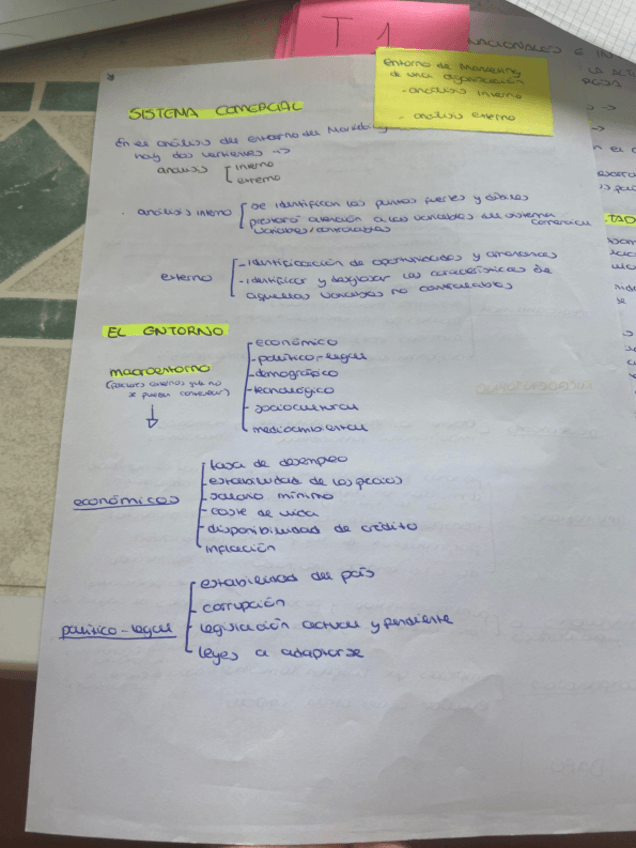 T 1
Entorno de Marketing
de una organización
- análisis interno
- análisis externo
SISTEMA COMERCIAL
En el análisis del entorno del
hay dos vertientes ->
análisis [ interno
externo
. análisis interno [ se identifican los puntos fuertes y débiles
prestará atención a las variables del sistema comercial
variables controlables
externo [ - identificación de oportunidades y amenazas
- identificar y desglosar las características de
aquellas variables no controlables
EL ENTORNO
macroentorno
(factores externos que no
se pueden controlar)
- económico
- político-legal
- demográfico
- tecnológico
- sociocultural
mediambiental
económicos
tasa de desempleo
- estabilidad de los precios
- salario mínimo
- coste de vida
- disponibilidad de crédito
inflación
político-legal
estabilidad del país
- corrupción
- legislación actual y pendiente
leyes a adaptarse